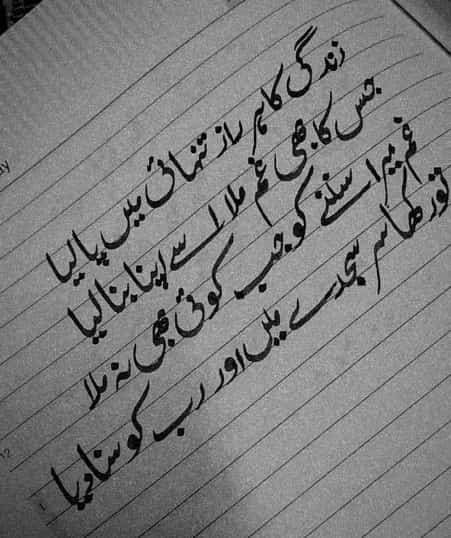 زندگی کا ہر راز تنہائی میں پا لیا
جس کا بھی غم ملا اسے اپنا بنا لیا
غم میرا سننے کو جب کوئی بھی نہ ملا
تو رکھا سر سجدے میں اور رب کو سنا دیا
12